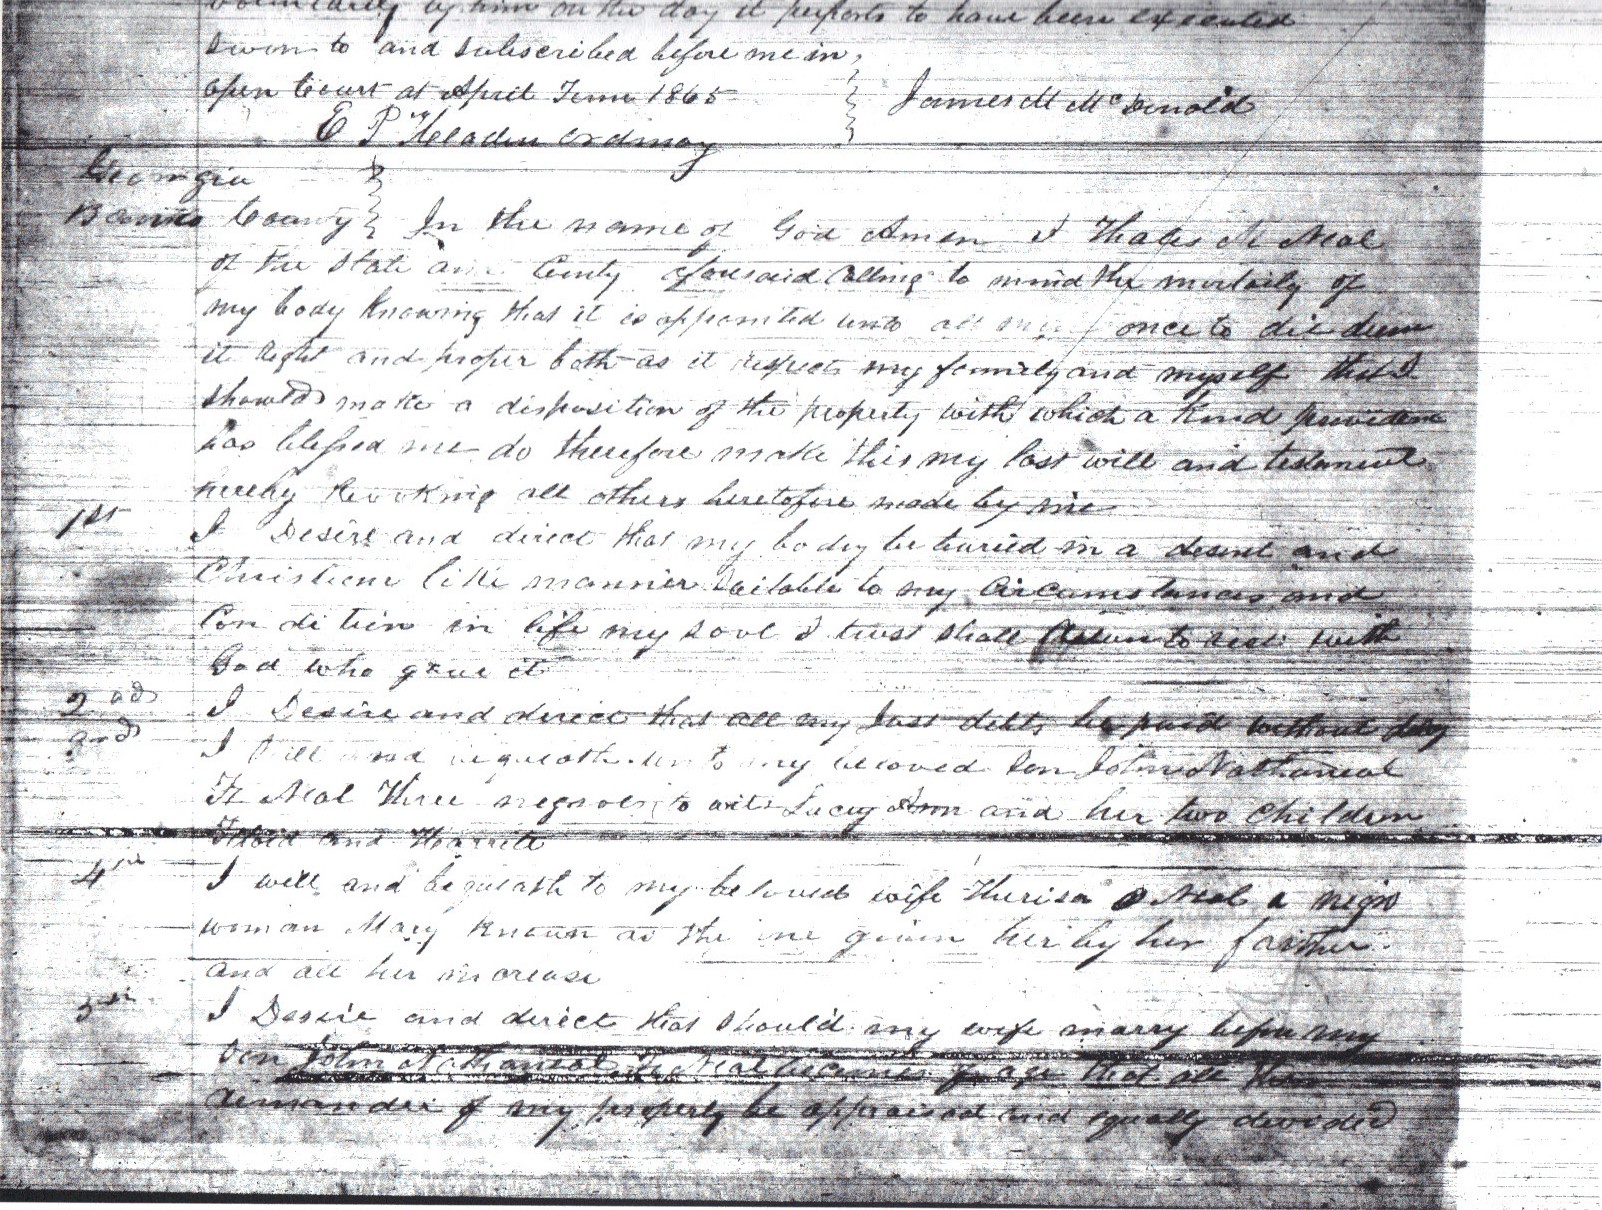 voluntarily by him on the day it purports to have been executed
Sworn to and subscribed before me in
open Court at April Term 1865
James M McDonald
E P Ordinary
Georgia
Banks County In the name of God Amen I Thales M Neal
of the State and County aforesaid calling to mind the mortality of
my body knowing that it is appointed unto all men once to die deem
it right and proper both as it respects my family and myself that I
should make a disposition of the property with which a kind providence
has blessed me do therefore make this my last will and testament
hereby revoking all others heretofore made by me
1st I Desire and direct that my body be buried in a desent and
Christian like manner suitable to my circumstances and
Condition in life my soul I trust shall return to rest with
God who gave it
2nd I Desire and direct that all my just debts be paid without delay
and I Will and bequeath unto my beloved Son John Nathaneal
Neal three negroes to wit Lucy Ann and her two children
and Harriet
4th I will and bequeath to my beloved wife Neal a negro
woman Mary known as the one given her by her farther
and all her increase
I Desire and direct that should my wife marry before my
Son John Nathaneal Neal becomes of age that all the
remainder of my property be appraised and equally devided